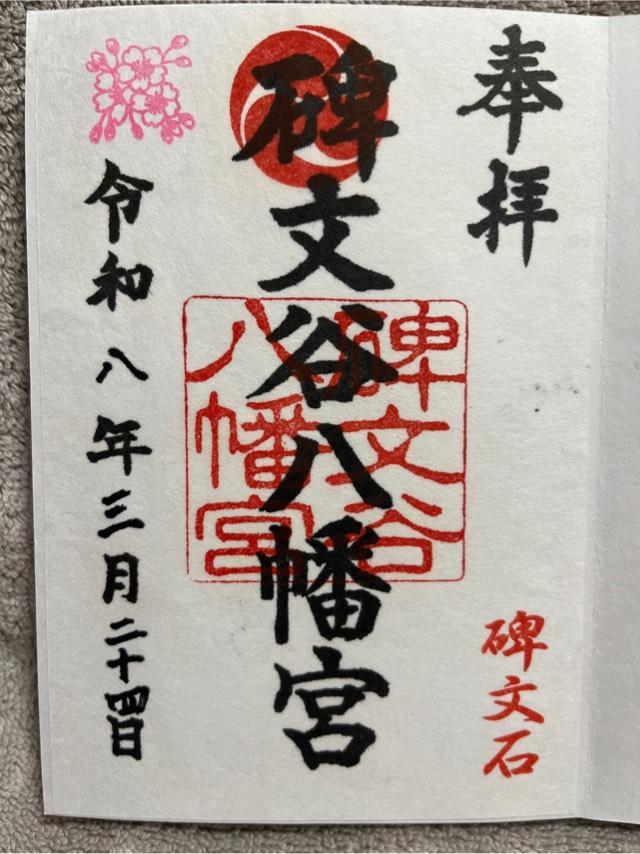 奉拝
碑文石
碑文谷八幡宮
碑文谷
八幡宮
令和八年三月二十四日